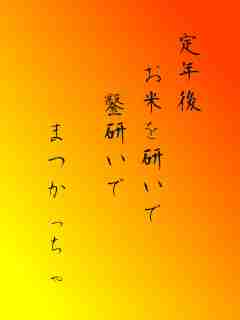 定年後
お米を研いで
鑿研いで
まつかっちゃ